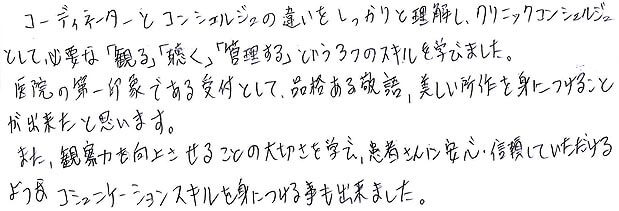 コーディネーターとコンシェルジュの違いをしっかりと理解し、クリニックコンシェルジュ
として必要な「観る」「聴く」「管理する」という3つのスキルを学びました。
医院の第一印象である受付として、品格ある敬語、美しい所作を身につけること
が出来たと思います。
また、観察力を向上させることの大切さを学び、患者さんに安心・信頼していただける
ような コミュニケーションスキルを身につける事も出来ました。